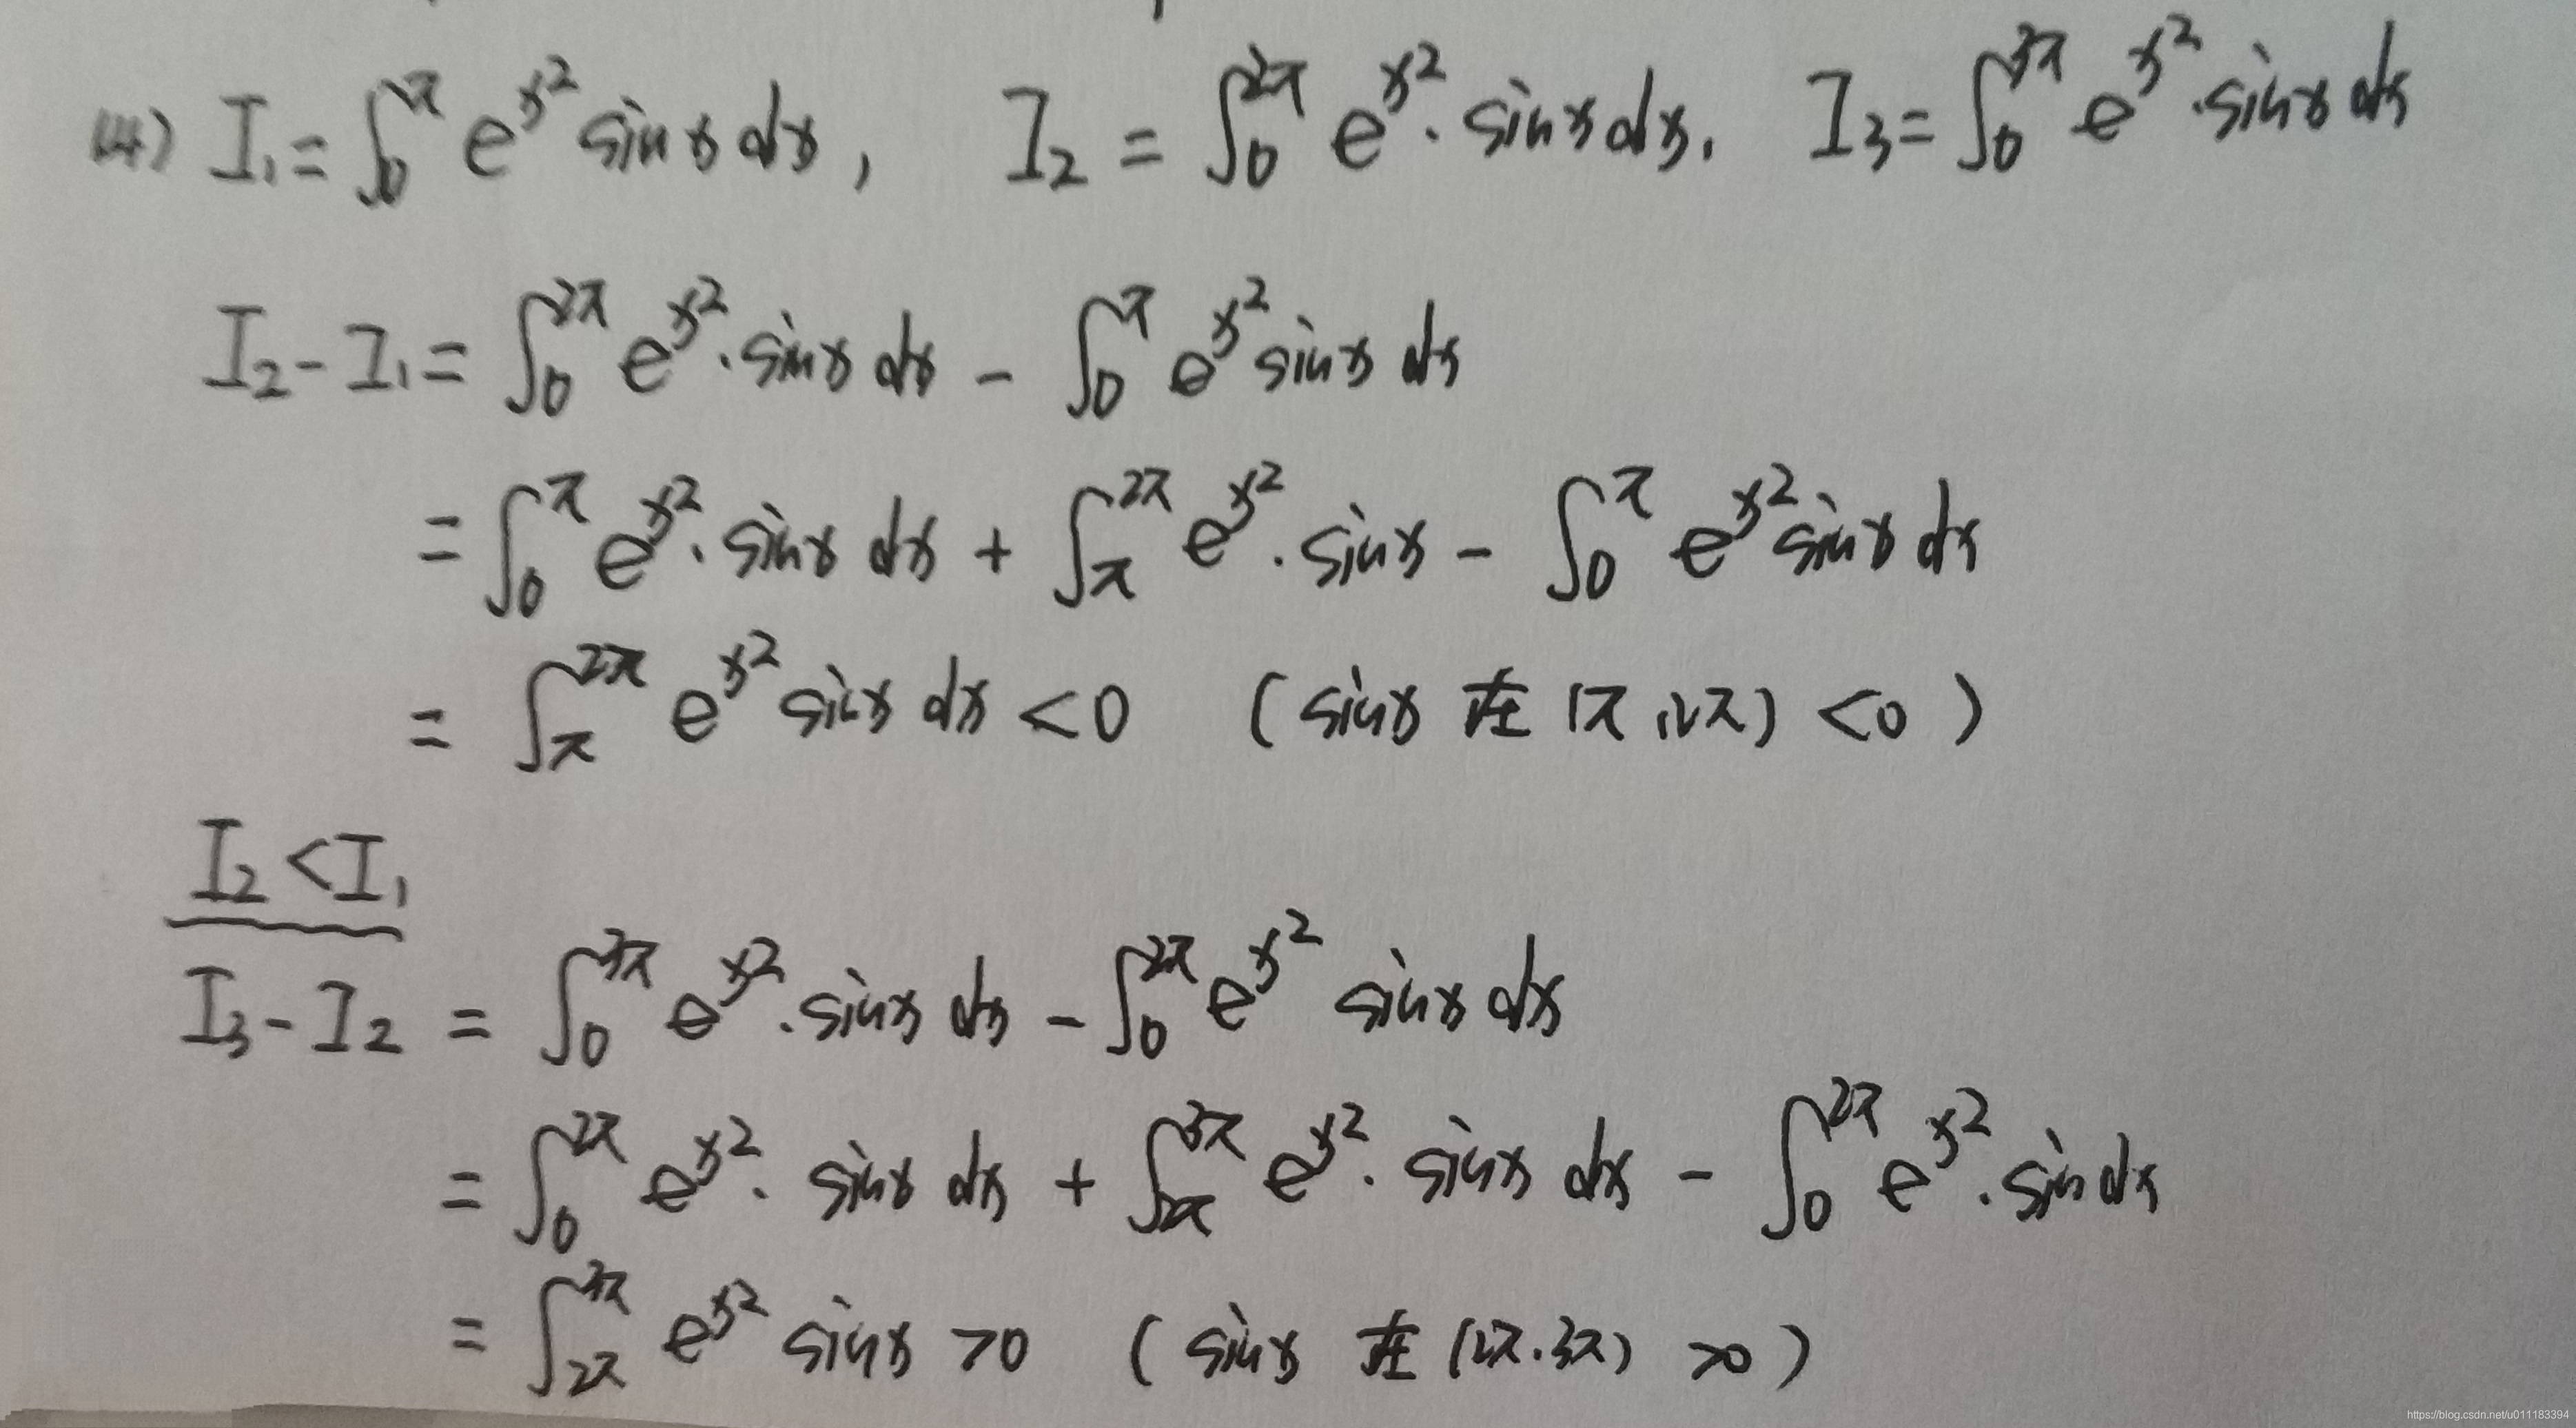 (4) I₁ = ∫₀^π e^{x²} sinx dx, I₂ = ∫₀^{2π} e^{x²}·sinx dx. I₃ = ∫₀^{3π} e^{x²}·sinx dx
I₂ - I₁ = ∫₀^{2π} e^{x²}·sinx dx - ∫₀^π e^{x²} sinx dx
= ∫₀^π e^{x²}·sinx dx + ∫_π^{2π} e^{x²}·sinx - ∫₀^π e^{x²} sinx dx
= ∫_π^{2π} e^{x²} sinx dx < 0 (sinx 在 (π,2π) <0)
I₂ < I₁
I₃ - I₂ = ∫₀^{3π} e^{x²}·sinx dx - ∫₀^{2π} e^{x²} sinx dx
= ∫₀^{2π} e^{x²}· sinx dx + ∫_{2π}^{3π} e^{x²}·sinx dx - ∫₀^{2π} e^{x²}·sin dx
= ∫_{2π}^{3π} e^{x²} sinx >0 (sinx 在 (2π.3π) >0)
https://blog.csdn.net/u011183394